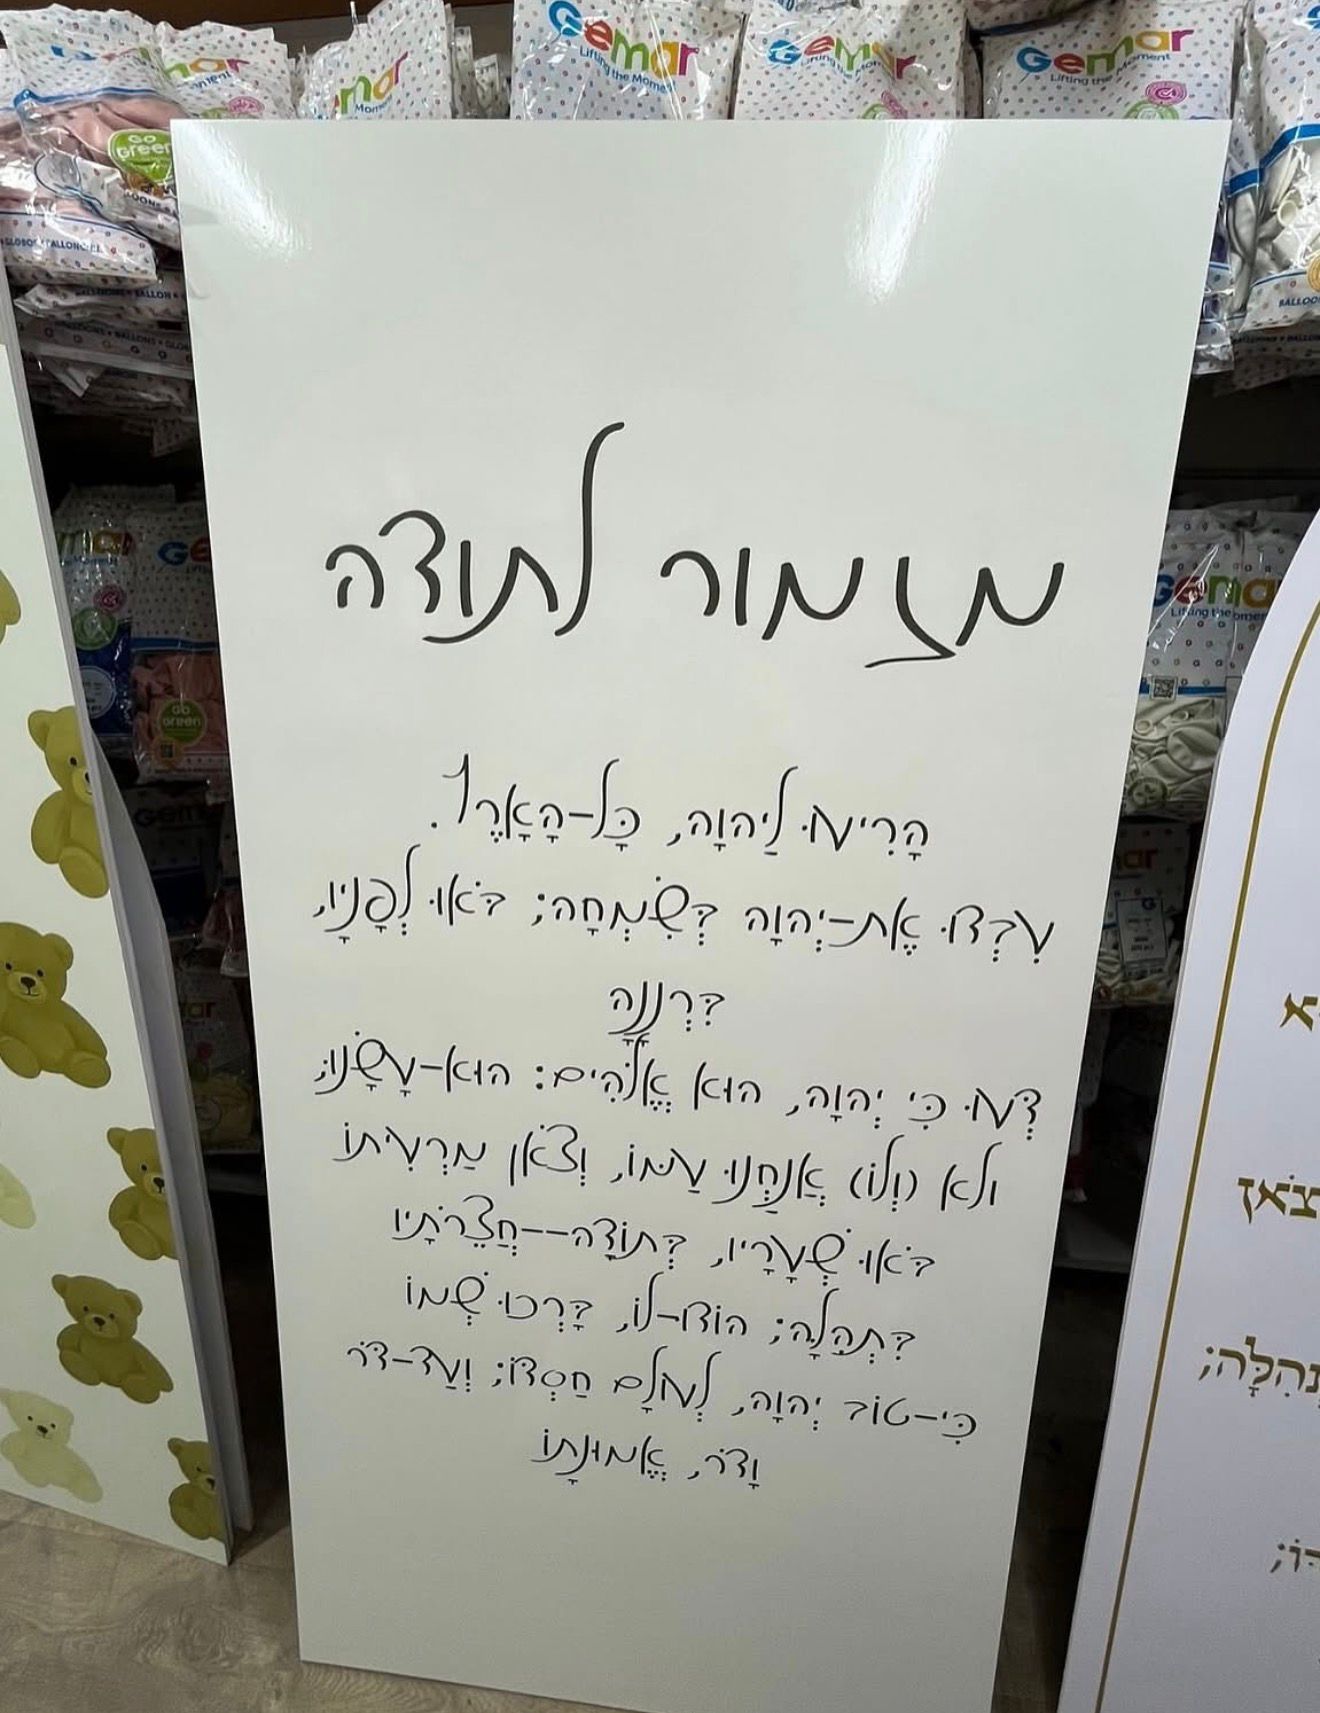 Gemar
Lifting the Moment
Gemar
Gemar
Lifting the Moment
Go Green
BALLOONS
מזמור לתודה
הָרִיעוּ לַיהוָה, כָּל-הָאָרֶץ.
עִבְדוּ אֶת-יְהוָה בְּשִׂמְחָה; בֹּאוּ לְפָנָיו,
בִּרְנָנָה
דְּעוּ כִּי יְהוָה, הוּא אֱלֹהִים: הוּא-עָשָׂנוּ;
ולא (וְלוֹ) אֲנַחְנוּ עַמּוֹ, וְצֹאן מַרְעִיתוֹ
בֹּאוּ שְׁעָרָיו, בְּתוֹדָה--חֲצֵרֹתָיו
בִּתְהִלָּה; הוֹדוּ-לוֹ, בָּרְכוּ שְׁמוֹ
כִּי-טוֹב יְהוָה, לְעוֹלָם חַסְדּוֹ; וְעַד-דֹּר
וָדֹר, אֱמוּנָתוֹ
Go Green
Gemar
Lifting the Moment
צֹאן